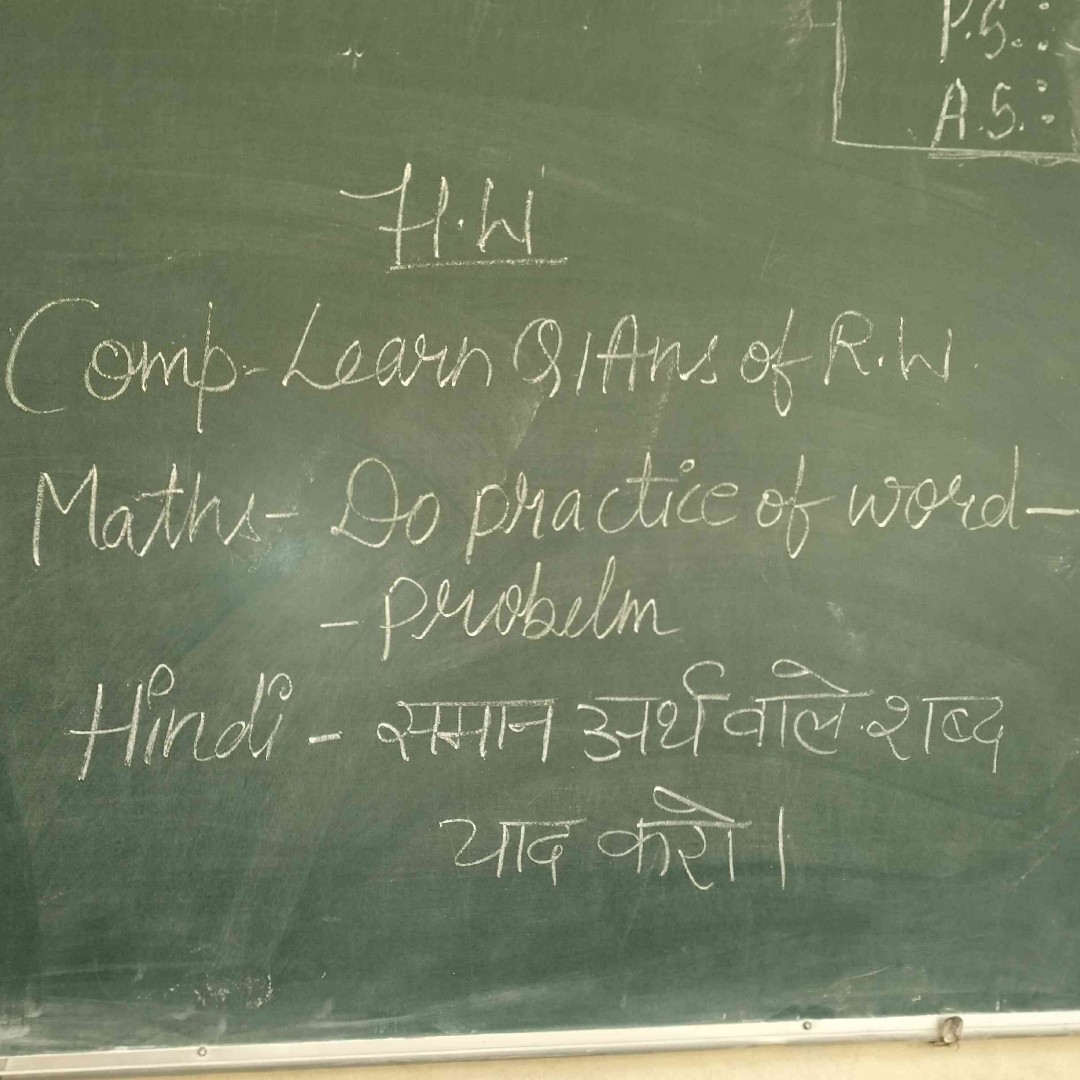 P.S. :
A.S. :
H.W
Comp- Learn Q/Ans of R.W.
Maths- Do practice of word-
- probelm
Hindi - समान अर्थ वाले शब्द
याद करो।